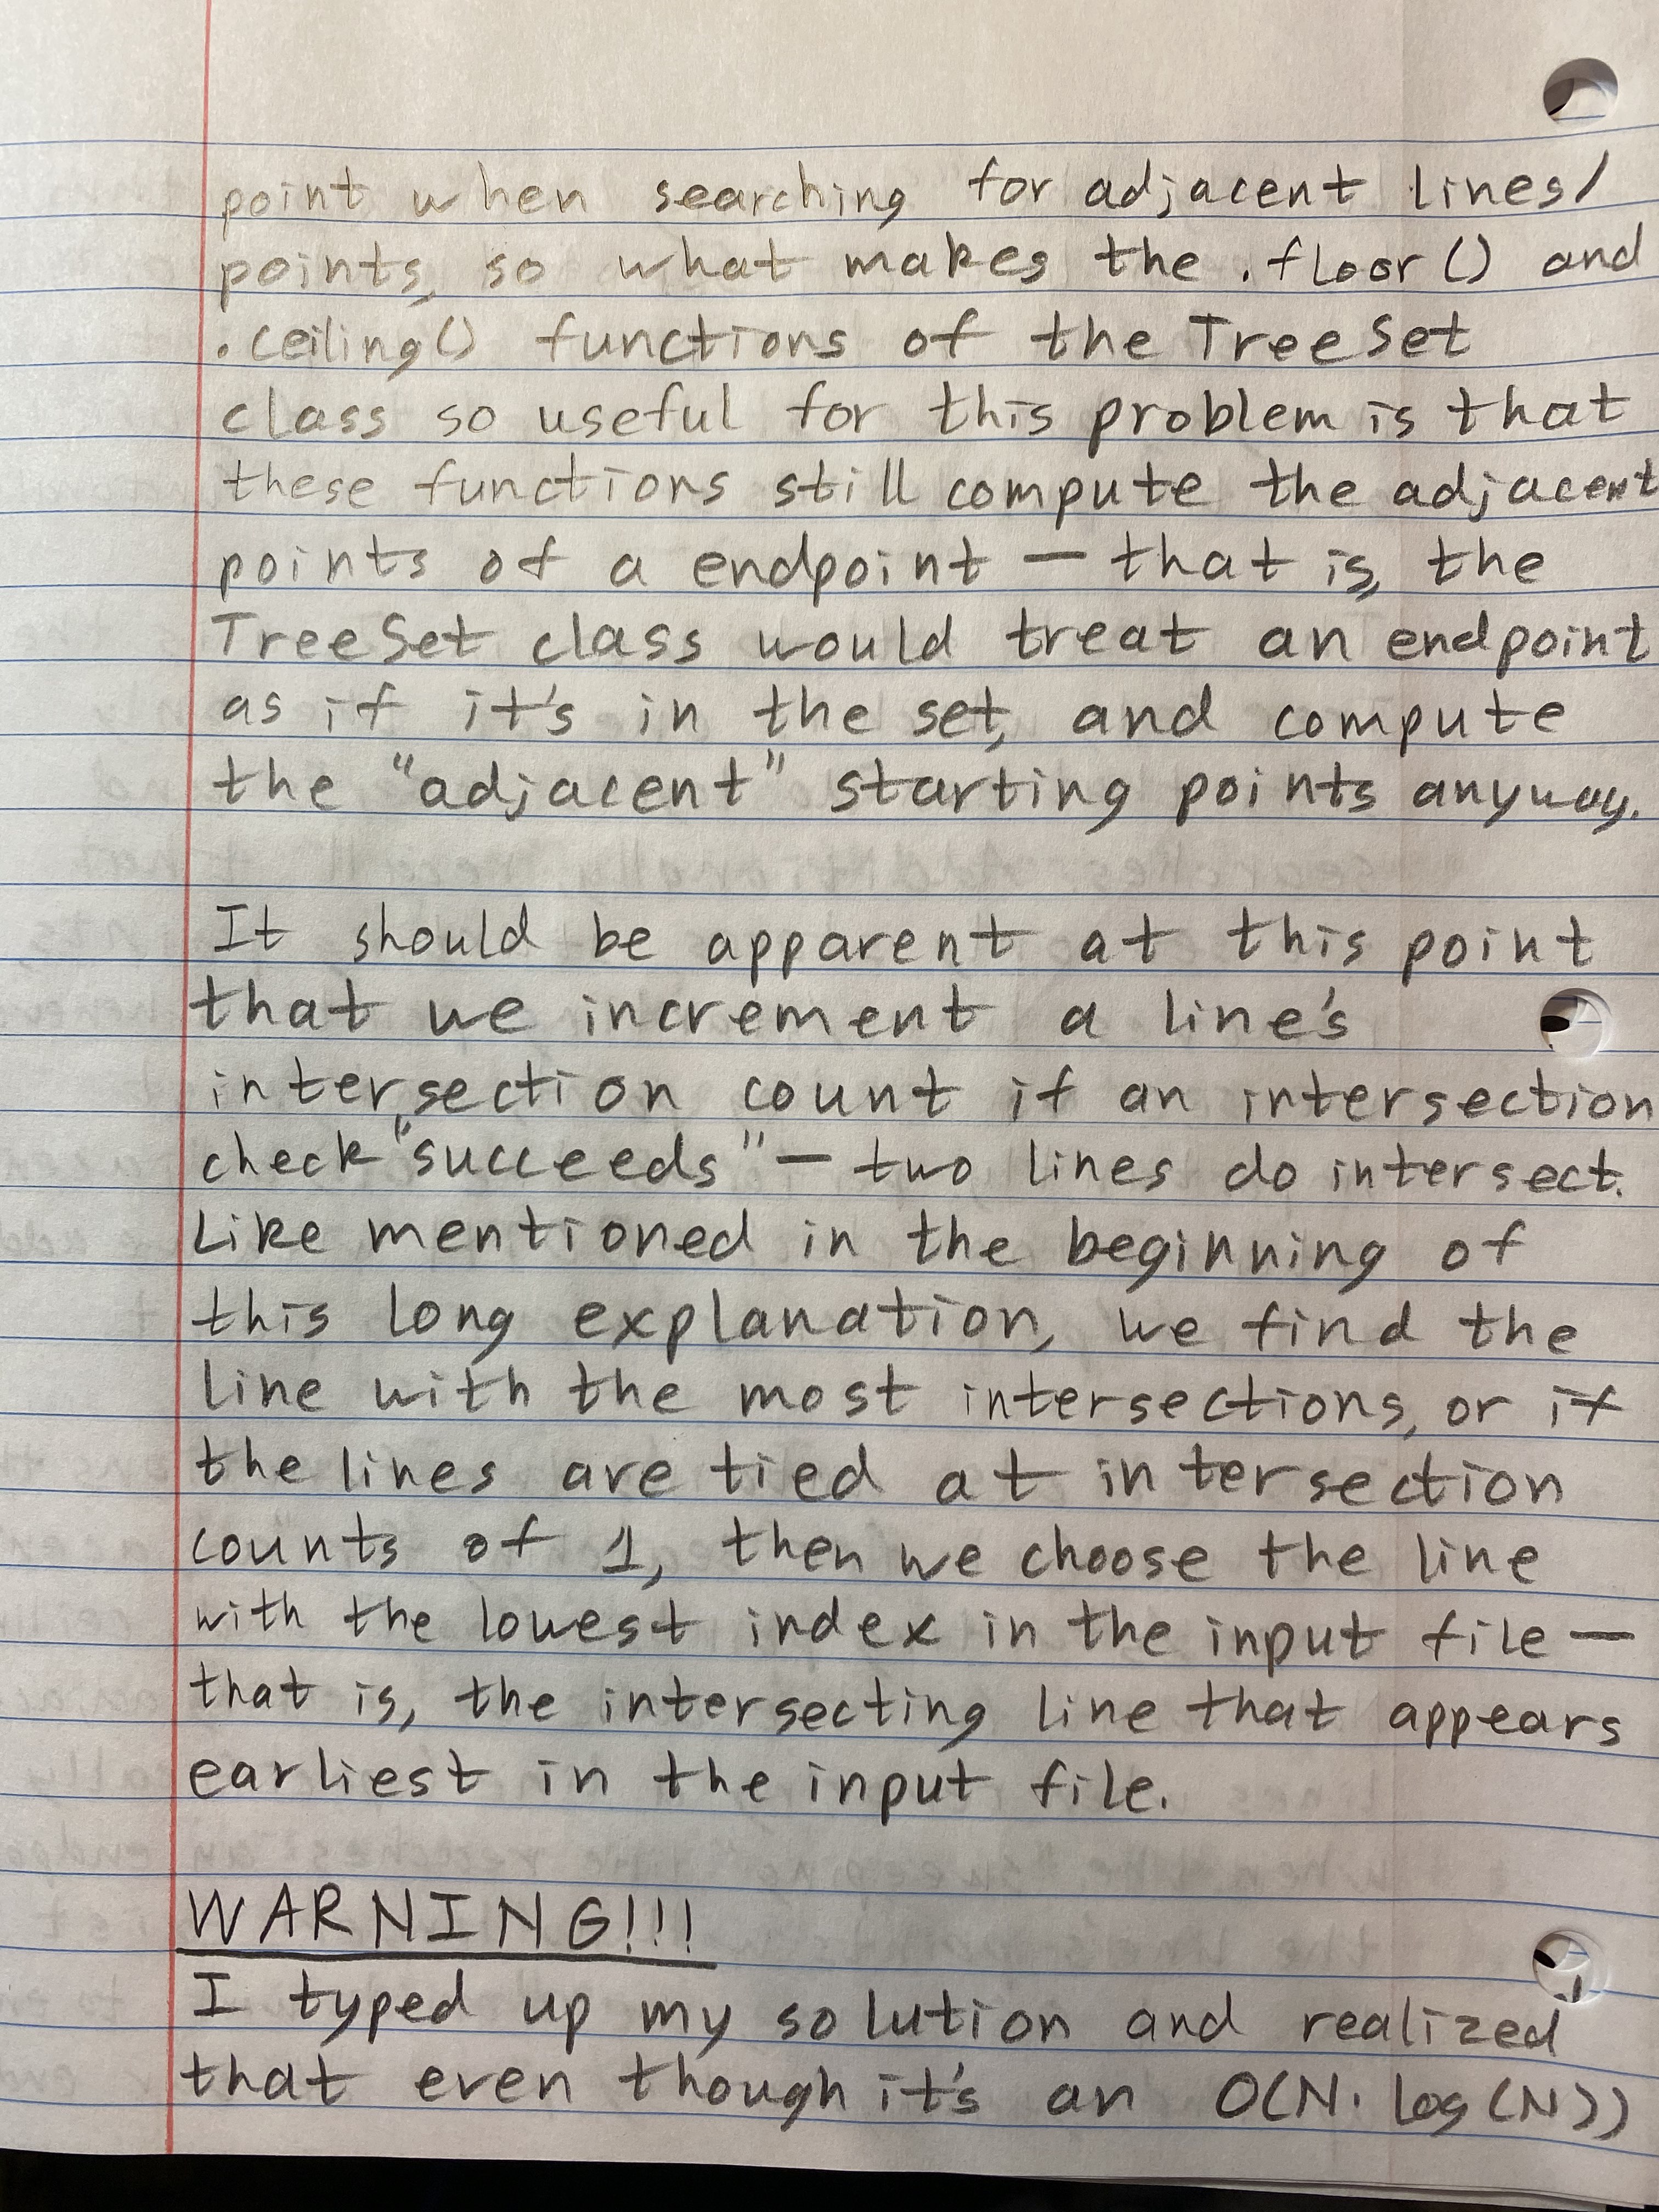 point when searching for adjacent lines/
points, so what makes the .floor() and
.ceiling() functions of the TreeSet
class so useful for this problem is that
these functions still compute the adjacent
points of a endpoint — that is, the
TreeSet class would treat an endpoint
as if it's in the set, and compute
the "adjacent" starting points anyway.
It should be apparent at this point
that we increment a line's
intersection count if an intersection
check "succeeds" — two lines do intersect.
Like mentioned in the beginning of
this long explanation, we find the
line with the most intersections, or if
the lines are tied at intersection
counts of 1, then we choose the line
with the lowest index in the input file —
that is, the intersecting line that appears
earliest in the input file.
WARNING!!!
I typed up my solution and realized
that even though it's an O(N · log(N))